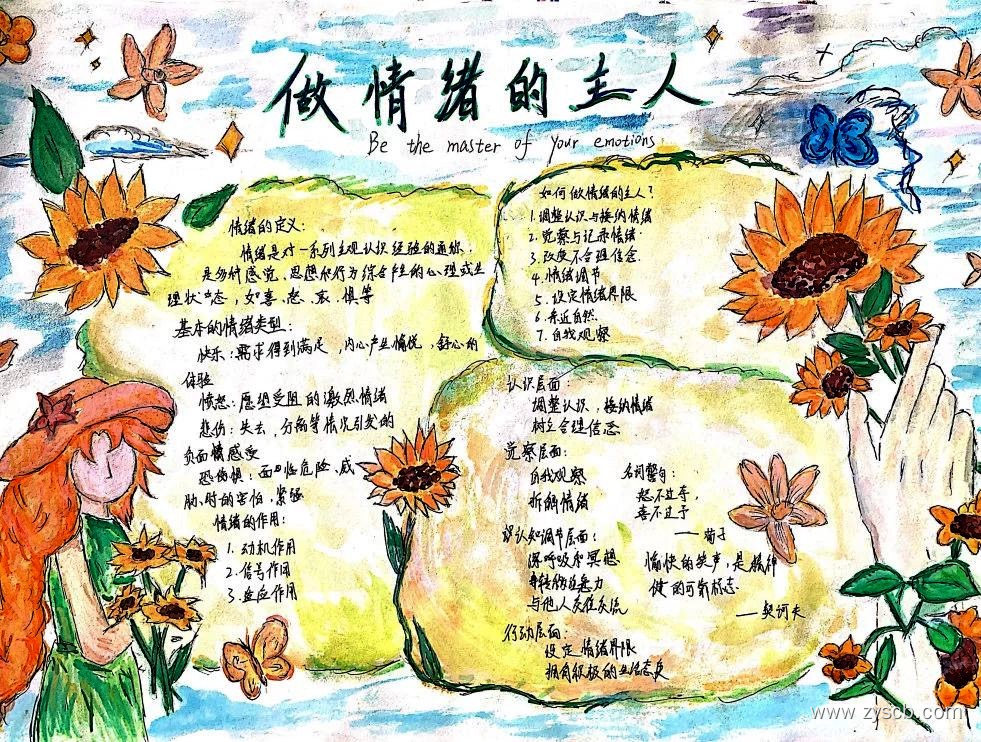 做情绪的主人
Be the master of your emotions
情绪的定义:
情绪是对一系列主观认识经验的通称.
是多种感觉、思想和行为综合产生的心理或生
理状态,如喜、怒、哀、惧等
基本的情绪类型:
快乐:需求得到满足,内心产生愉悦、舒心的
体验
愤怒:愿望受阻的激烈情绪
悲伤:失去、分离等情况引发的
负面情感受
恐惧:面临危险、威
胁时的害怕,紧张
情绪的作用:
1. 动机作用
2. 信号作用
3. 适应作用
如何做情绪的主人?
1.调整认识与接纳情绪
2. 觉察与记录情绪
3. 改变不合理信念
4. 情绪调节
5. 设定情绪界限
6. 亲近自然
7. 自我观察
认识层面:
调整认识,接纳情绪
树立合理信念
觉察层面:
自我观察
拆解情绪
认知调节层面:
深呼吸和冥想
转移注意力
与他人友任交流
行动层面:
设定情绪界限
拥有积极的生活态度
名词警句:
怒不过夺,
喜不过予
——荀子
愉快的笑声,是精神
健的可靠标志
——契诃夫
www.zyscb.com